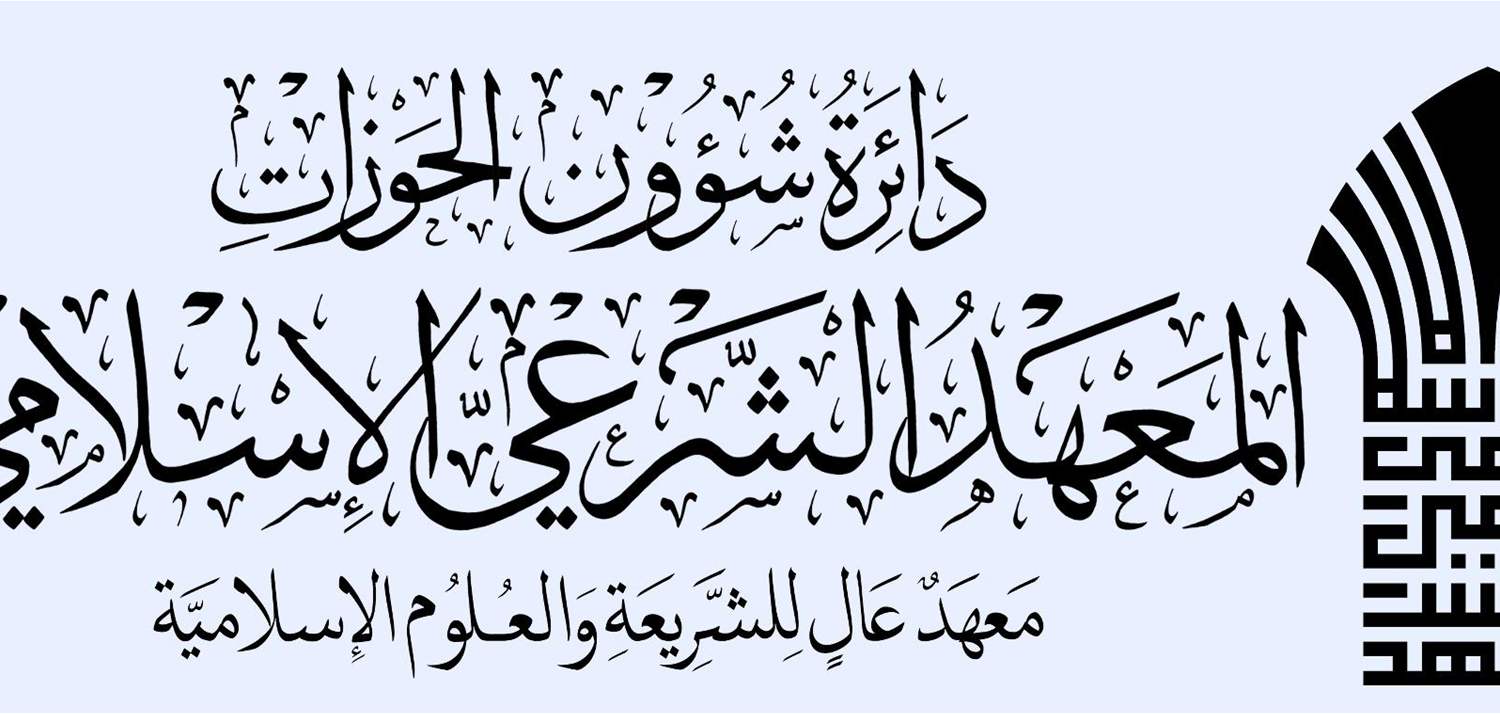 دَائِرَةُ شُؤُونِ الحَوْزَاتِ
المَعْهَدُ الشَّرْعِيُّ الإِسْلَامِي
مَعهَدٌ عَالٍ لِلشَّرِيعَةِ وَالعُلُومِ الإِسلامیَّة